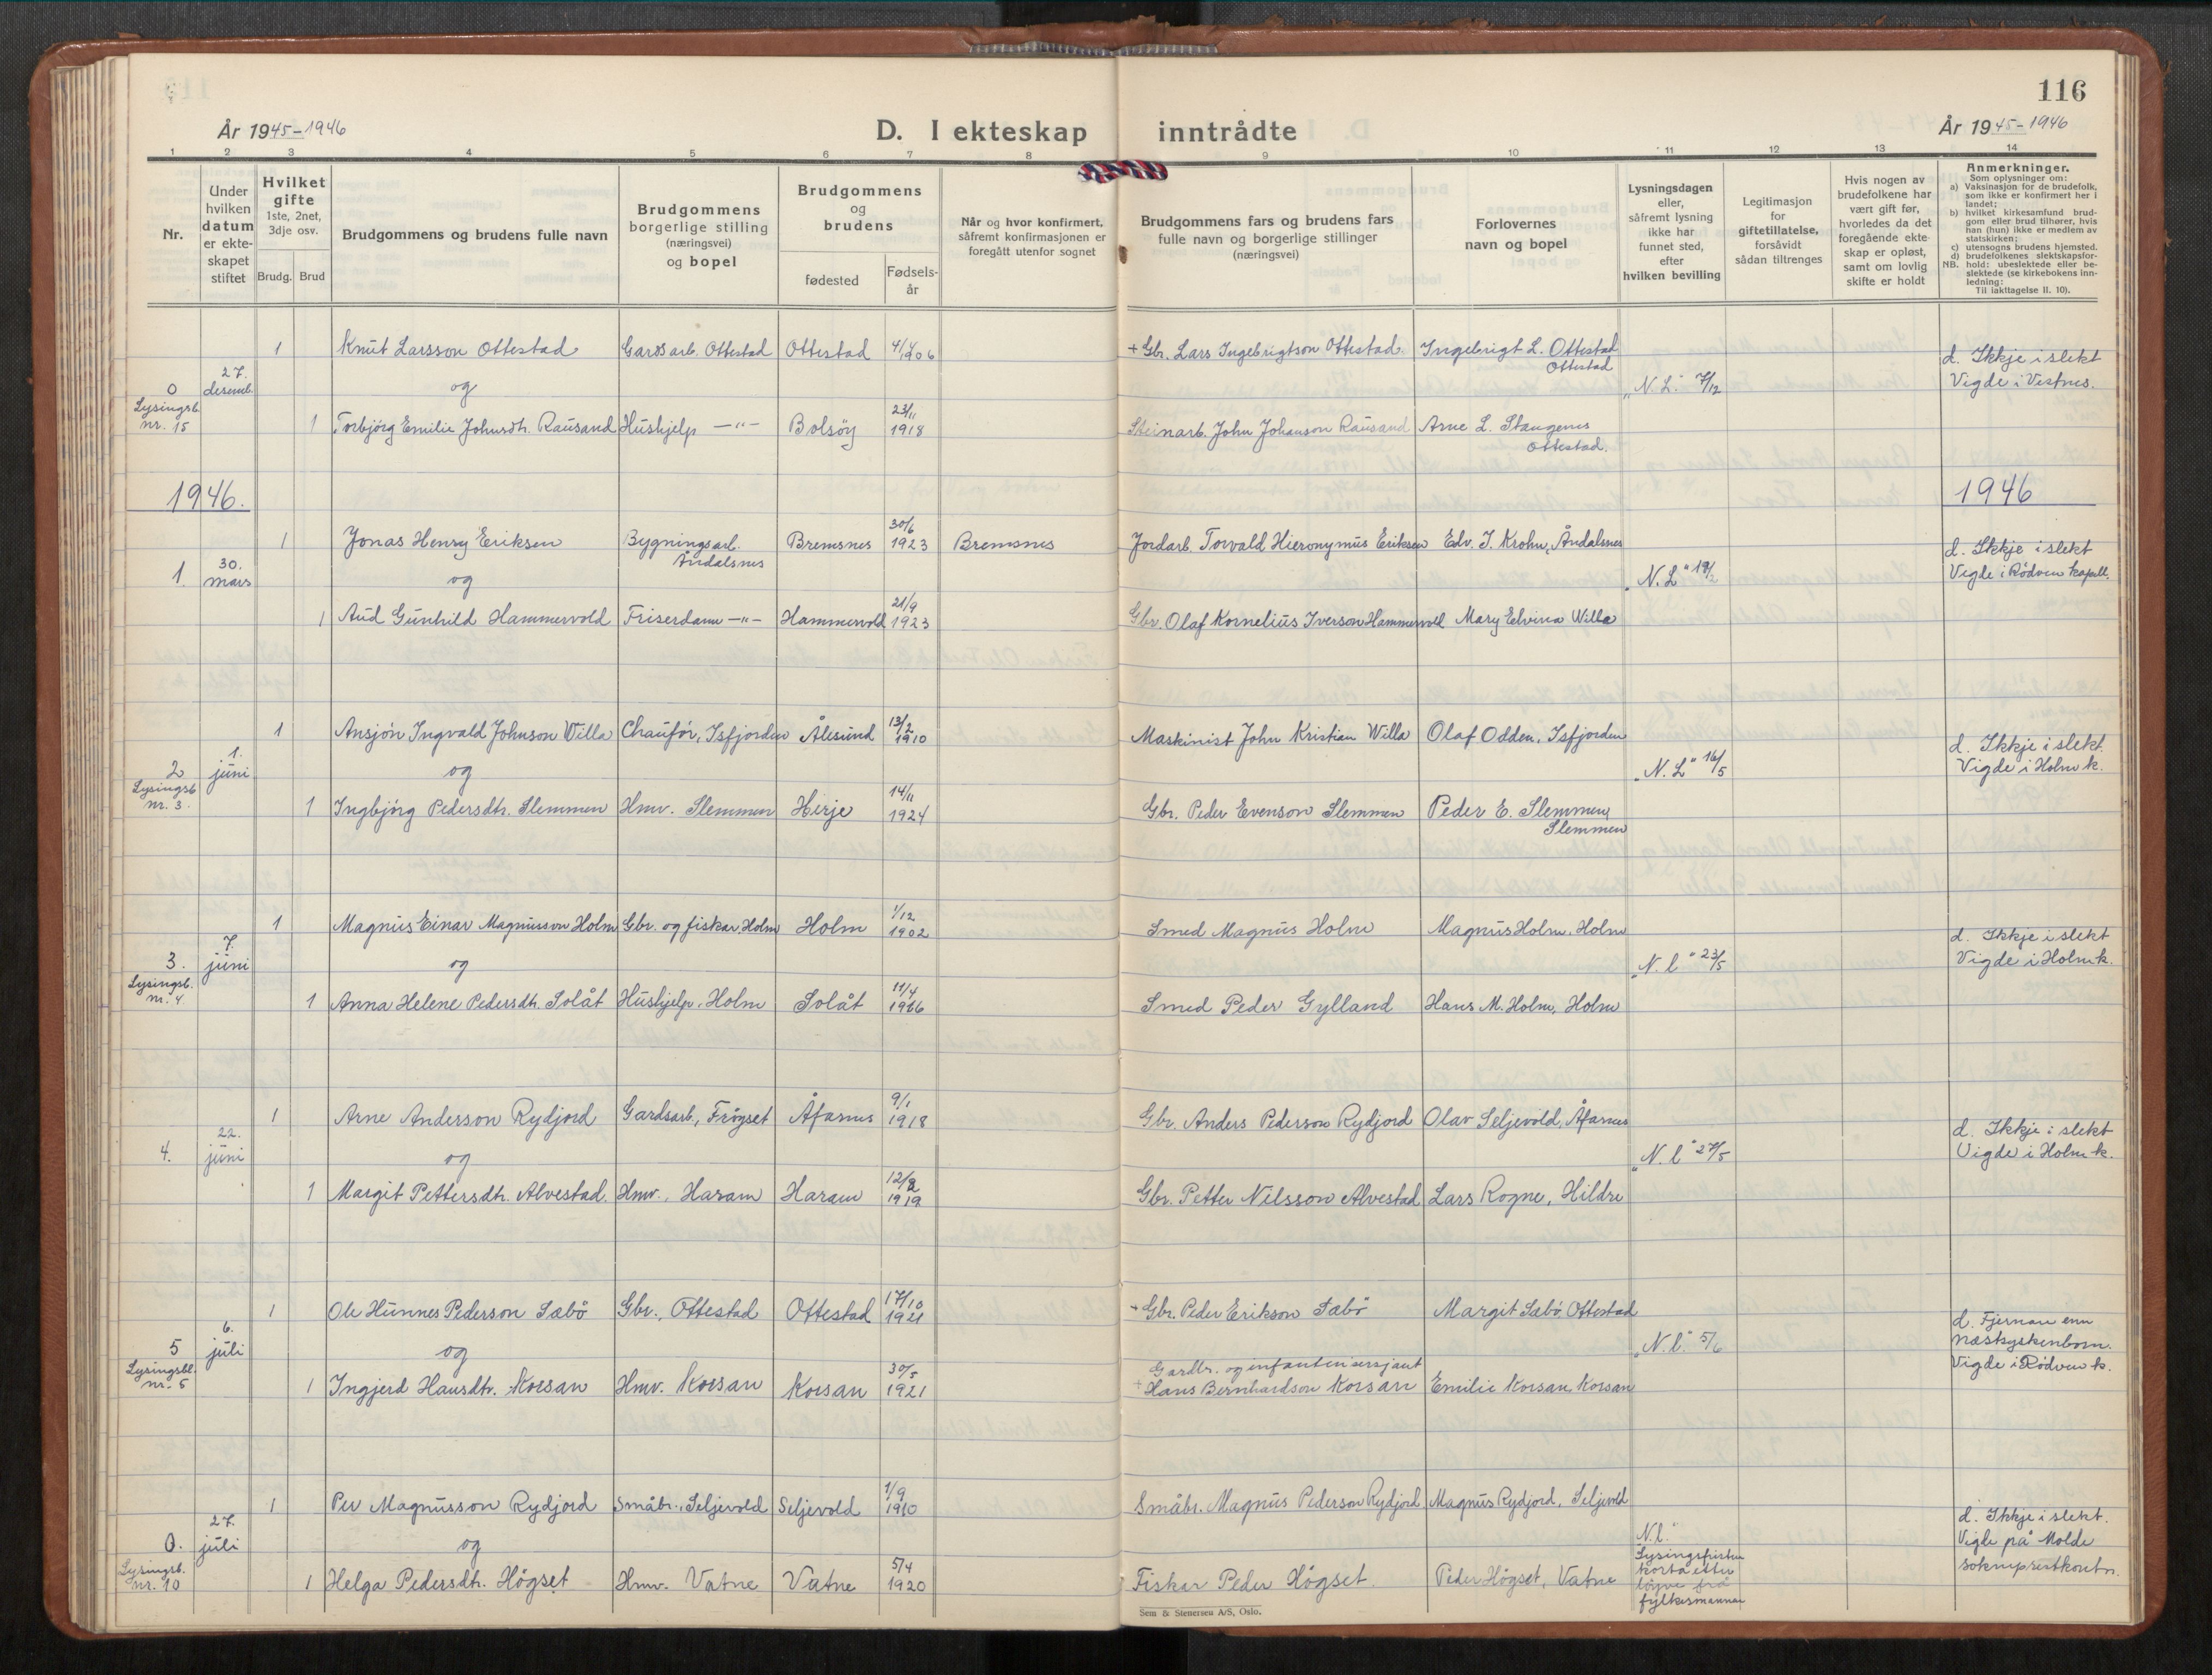 116
År 1945-1946
D. I ekteskap inntrådte
År 1945-1946
1 2 3 4 5 6 7 8 9 10 11 12 13 14
Nr.
Under hvilken datum er ekte-skapet stiftet
Hvilket gifte 1ste, 2net, 3dje osv.
Brudg. Brud
Brudgommens og brudens fulle navn
Brudgommens borgerlige stilling (næringsvei) og bopel
Brudgommens og brudens
fødested
Fødsels-år
Når og hvor konfirmert, såfremt konfirmasjonen er foregått utenfor sognet
Brudgommens fars og brudens fars fulle navn og borgerlige stillinger (næringsvei)
Forlovernes navn og bopel
Lysningsdagen eller, såfremt lysning ikke har funnet sted, efter hvilken bevilling
Legitimasjon for giftetillatelse, forsåvidt sådan tiltrenges
Hvis nogen av brudefolkene har vært gift før, hvorledes da det foregående ekte-skap er opløst, samt om lovlig skifte er holdt
Anmerkninger.
Som oplysninger om:
a) Vaksinasjon for de brudefolk, som ikke er konfirmert her i landet;
b) hvilket kirkesamfund brud-gom eller brud tilhører, hvis han (hun) ikke er medlem av statskirken;
c) utensogns brudens hjemsted.
d) brudefolkenes slektskapsfor-hold: ubeslektede eller be-slektede (se kirkebokens inn-ledning:
NB. Til iakttagelse II. 10).
1 Knut Larsson Ottestad Gardsarb. Ottestad Ottestad 4/4 1906 + Gbr. Lars Ingebrigtson Ottestad. Ingebrigt L. Ottestad Ottestad d. Ikkje i slekt
0 27. desemb. og "N. L." 7/12 Vigde i Vestnes.
Lysingsb. nr. 15 1 Torbjörg Emilie Johnsdt. Rausand Hushjelp —"— Bolsöy 23/11 1918 Steinarb. John Johanson Rausand Arne L. Stangenes Ottestad.
1946. 1946
1 Jonas Henry Eriksen Bygningsarb. Åndalsnes Bremsnes 30/6 1923 Bremsnes Jordarb. Torvald Hieronymus Eriksen Edv. J. Krohn, Åndalsnes d. Ikkje i slekt
1. 30. mars og "N. L" 19/2 Vigde i Rödven kapell.
1 Aud Gunhild Hammervold Friserdame —"— Hammervold 21/9 1923 Gbr. Olaf Kornelius Iverson Hammervoll Mary Elvina Willa
1 Ansjón Ingvald Johnson Willa Chauför, Isfjorden Ålesund 13/2 1910 Maskinist John Kristian Willa Olaf Odden, Isfjorden d. Ikkje i slekt.
2 1. juni og "N. L" 16/5 Vigde i Holm k.
Lysingsb nr. 3. 1 Ingbjörg Pedersdtr. Slemmen Hmv. Slemmen Herje 14/11 1924 Gbr. Peder Evenson Slemmen Peder E. Slemmen, Slemmen
1 Magnus Einar Magnusson Holm Gbr. og fiskar, Holm Holm 1/12 1902 Smed Magnus Holm Magnus Holm, Holm d. Ikkje i slekt
3. 7. juni og "N. l" 23/5 Vigde i Holm k.
Lysingsb. nr. 4 1 Anna Helene Pedersdtr. Solåt Hushjelp, Holm Solåt 11/4 Smed Peder Gylland Hans M. Holm, Holm
1 Arne Anderson Rydjord Gardsarb., Frögset Åfarnes 9/1 1918 Gbr. Anders Pederson Rydjord Olav Seljevold, Åfarnes d. Ikkje i slekt
4. 22. juni og "N. l" 27/5 Vigde i Holm k.
1 Margit Pettersdtr. Alvestad. Hmv., Haram Haram 12/2 1919 Gbr. Petter Nilsson Alvestad Lars Rogne, Hildre
1 Ole Hunnes Pederson Sæbö Gbr., Ottestad Ottestad 17/10 1921 + Gbr. Peder Erikson Sæbö Margit Sæbö, Ottestad d. Fjernan enn næskyskenborn.
5 6. juli og "N. l." 5/6 Vigde i Rödven k.
Lysingsbl. nr. 5 1 Ingjerd Hansdtr. Korsan Hmv. Korsan Korsan 30/5 1921 Gardbr. og infanterisersjant + Hans Bernhardson Korsan Emilie Korsan, Korsan
1 Per Magnusson Rydjord Småbr., Seljevold Seljevold 1/9 1910 Småbr. Magnus Pederson Rydjord Magnus Rydjord, Seljevold d. Ikkje i slekt.
0. 27. juli og N.l." Lysingsfristen korta etter löyve frå fylkesmannen Vigde på Molde sokneprestkontor.
Lysingsb. nr. 10 1 Helga Pedersdtr. Högset Hmv. Vatne Vatne 5/4 1920 Fiskar Peder Högset. Peder Högset, Vatne
Sem & Stenersen A/S, Oslo.